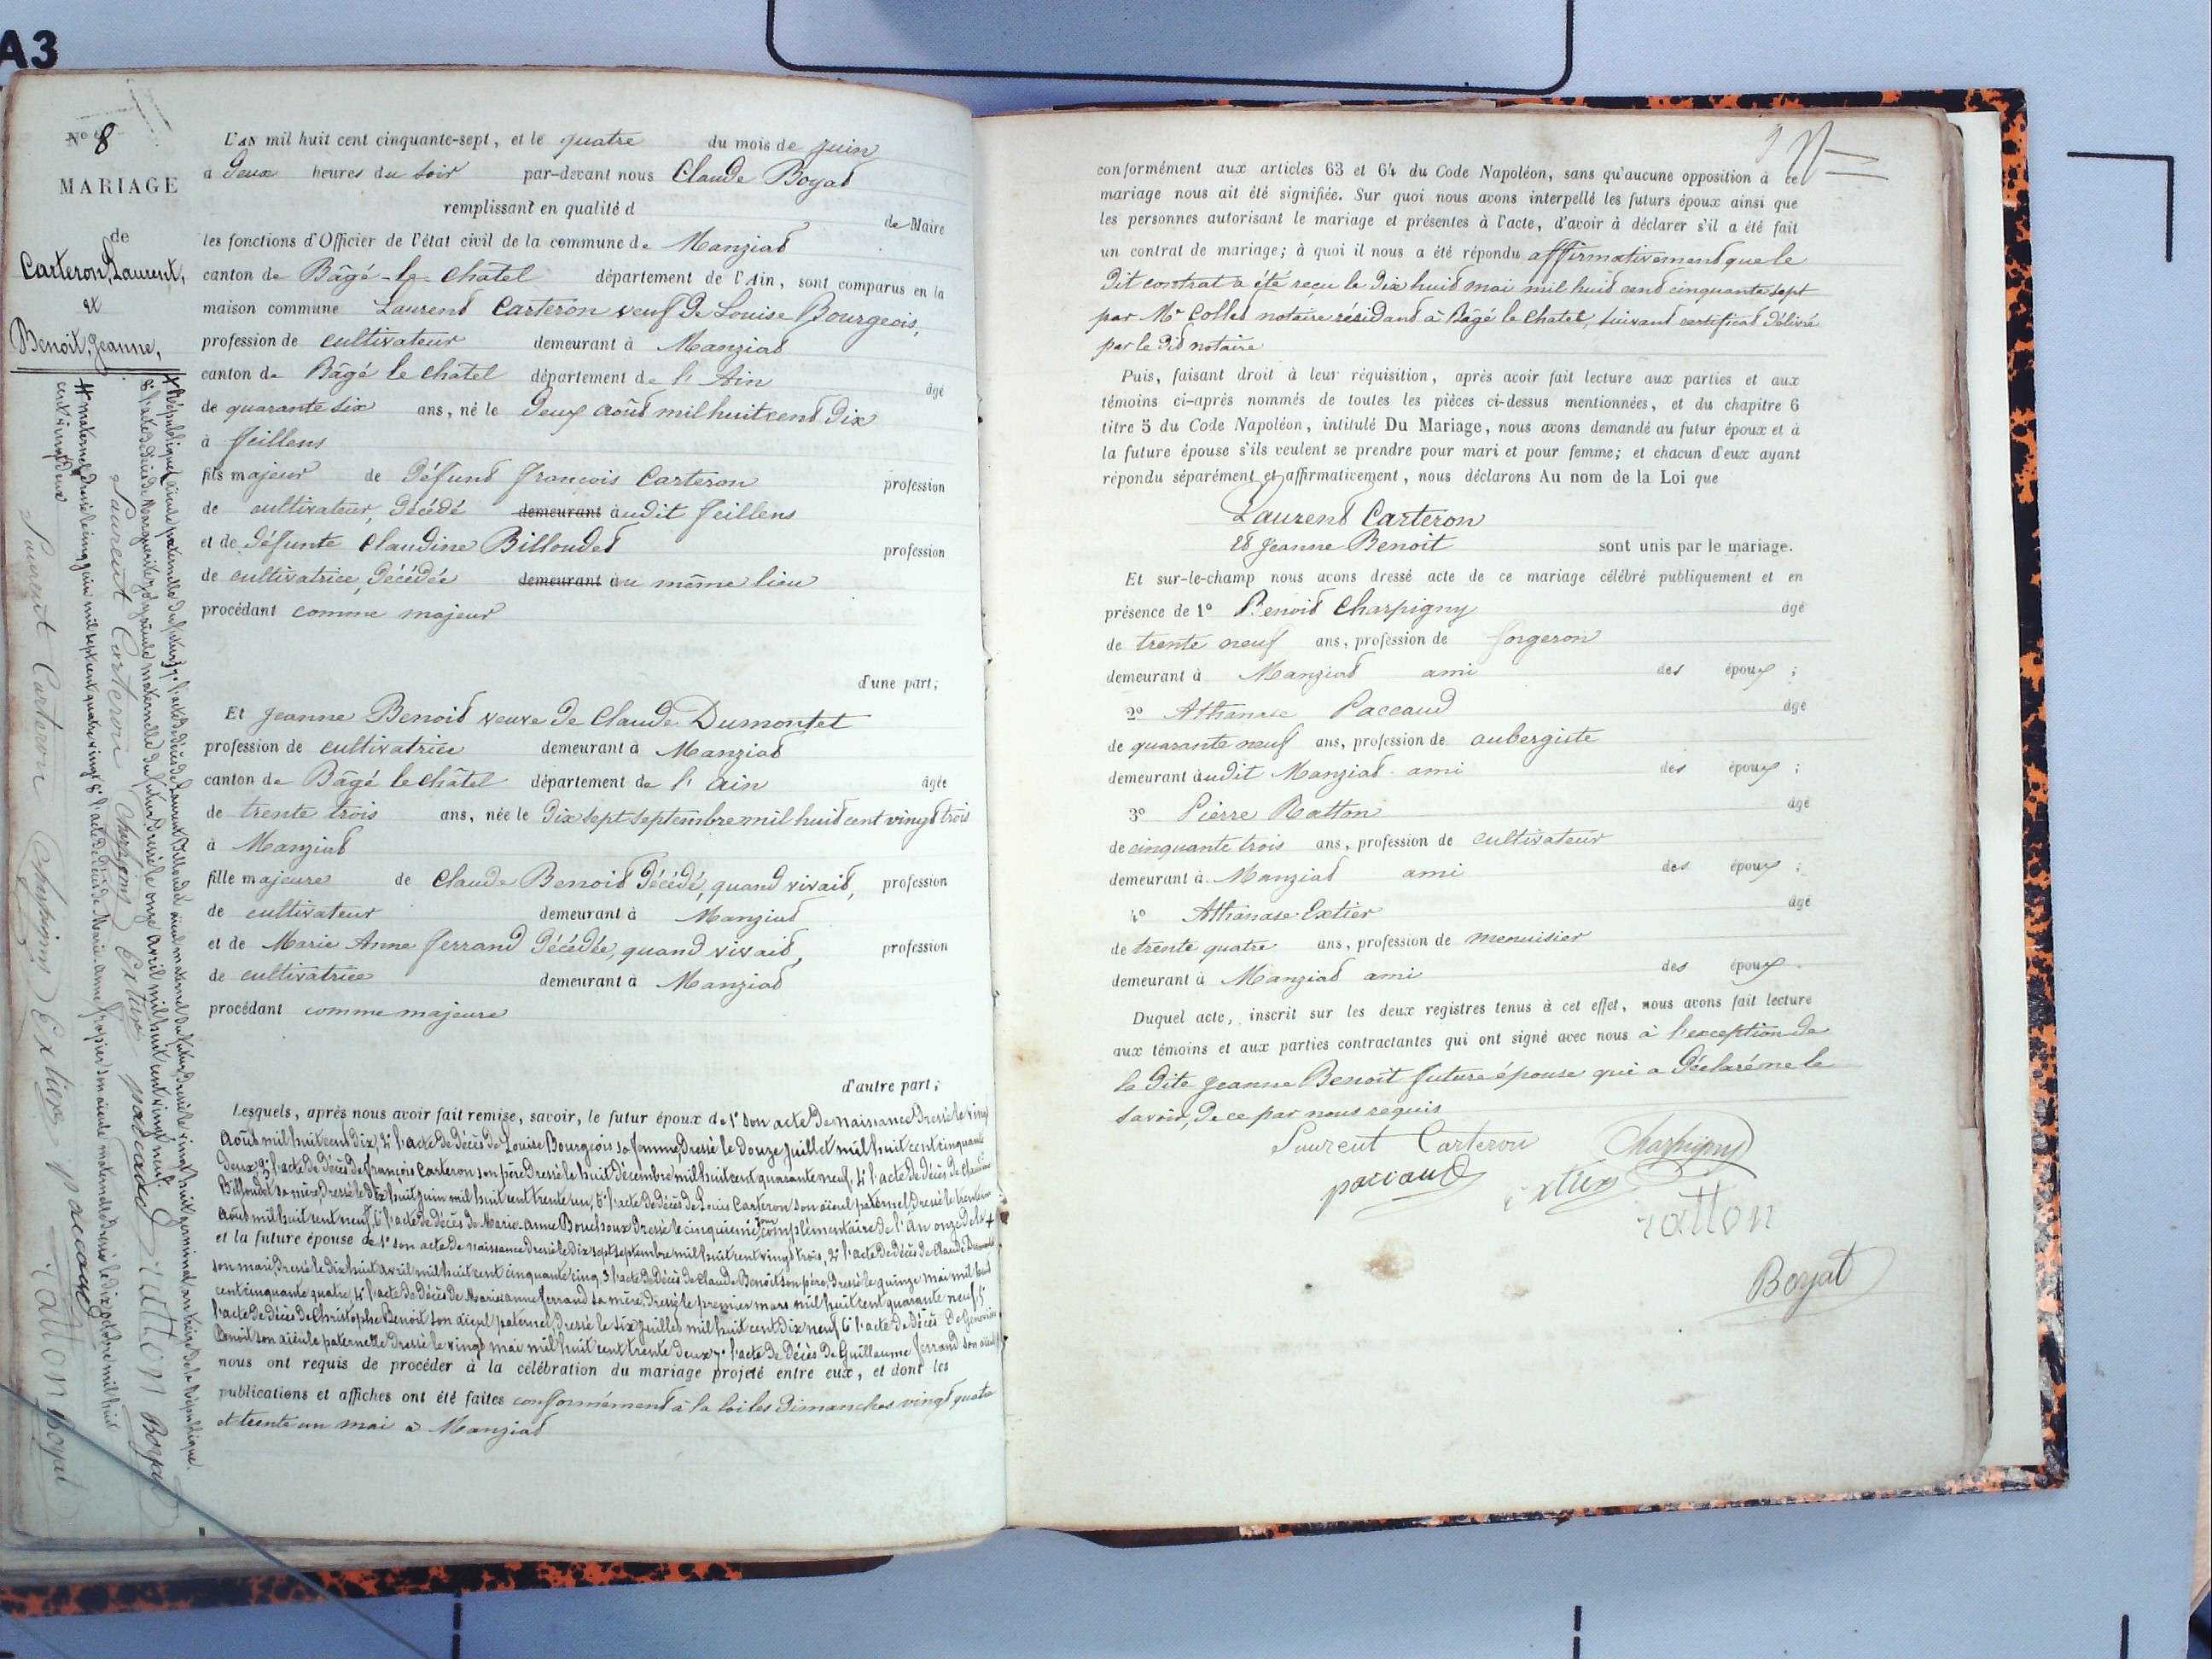 A3
N° 8
MARIAGE
de
Carteron, Laurent,
et
Benoit, Jeanne,
L'an mil huit cent cinquante-sept, et le quatre du mois de juin
à deux heures du soir par-devant nous Claude Boyat
remplissant en qualité d
de Maire
les fonctions d'Officier de l'état civil de la commune de Manziat
canton de Bâgé-le-châtel département de l'Ain, sont comparus en la
maison commune Laurent Carteron veuf de Louise Bourgeois,
profession de cultivateur demeurant à Manziat
canton de Bâgé le châtel département de l'Ain âgé
de quarante six ans, né le deux août mil huit cent dix
à feillens
fils majeur de défunt françois Carteron profession
de cultivateur, décédé demeurant audit feillens
et de défunte Claudine Billoudet profession
de cultivatrice, décédée demeurant au même lieu
procédant comme majeur
d'une part;
Et Jeanne Benoit veuve de Claude Dumontet
profession de cultivatrice demeurant à Manziat
canton de Bâgé le châtel département de l'Ain âgée
de trente trois ans, née le dix sept septembre mil huit cent vingt trois
à Manziat
fille majeure de Claude Benoit décédé, quand vivait, profession
de cultivateur demeurant à Manziat
et de Marie Anne ferrand décédée, quand vivait, profession
de cultivatrice demeurant à Manziat
procédant comme majeure
d'autre part;
Lesquels, après nous avoir fait remise, savoir, le futur époux de 1° son acte de naissance dressé le vingt
août mil huit cent dix, 2° l'acte de décès de Louise Bourgeois sa femme, dressé le douze juillet mil huit cent cinquante
deux, 3° l'acte de décès de françois Carteron son père dressé le huit décembre mil huit cent quarante neuf, 4° l'acte de décès de Claudine
Billoudet sa mère, dressé le dix huit juin mil huit cent trente un, 5° l'acte de décès de Louis Carteron son aïeul paternel, dressé le trente un
août mil huit cent neuf, 6° l'acte de décès de Marie-Anne Bouchoux dressé le cinquième jour complémentaire de l'an onze de la +
et la future épouse de 1° son acte de naissance dressé le dix sept septembre mil huit cent vingt trois, 2° l'acte de décès de Claude Dumontet
son mari, dressé le dix huit avril mil huit cent cinquante cinq, 3° l'acte de décès de Claude Benoit son père, dressé le quinze mai mil huit
cent cinquante quatre, 4° l'acte de décès de Marie anne ferrand sa mère, dressé le premier mars mil huit cent quarante neuf, 5°
l'acte de décès de Christophe Benoit son aïeul paternel, dressé le six juillet mil huit cent dix neuf, 6° l'acte de décès de
Benoit son aïeule paternelle dressé le vingt mai mil huit cent trente deux, 7° l'acte de décès de Guillaume ferrand son aïeul
nous ont requis de procéder à la célébration du mariage projeté entre eux, et dont les
publications et affiches ont été faites conformément à la loi les dimanches vingt quatre
et trente un mai à Manziat
+ République, aïeule paternelle du futur, 7° l'acte de décès de Laurent Billoudet aïeul maternel du futur dressé le vingt huit germinal an treize de la République.
8° l'acte de décès de Marguerite aïeule maternelle du futur, dressé le onze avril mil huit cent vingt neuf.
Laurent Carteron Charpigny Extier paccaud ratton Boyat
# maternel dressé le cinq juin mil sept cent quatre vingt 8° l'acte de décès de Marie-anne son aïeule maternelle dressé le dix octobre mil huit
cent vingt deux
Laurent Carteron Charpigny Extier paccaud ratton Boyat
9
conformément aux articles 63 et 64 du Code Napoléon, sans qu'aucune opposition à ce
mariage nous ait été signifiée. Sur quoi nous avons interpellé les futurs époux ainsi que
les personnes autorisant le mariage et présentes à l'acte, d'avoir à déclarer s'il a été fait
un contrat de mariage; à quoi il nous a été répondu affirmativement que le
dit contrat a été reçu le dix huit mai mil huit cent cinquante sept
par Mr Collet notaire résidant à Bâgé le Chatel, suivant certificat délivré
par le dit notaire
Puis, faisant droit à leur réquisition, après avoir fait lecture aux parties et aux
témoins ci-après nommés de toutes les pièces ci-dessus mentionnées, et du chapitre 6
titre 5 du Code Napoléon, intitulé Du Mariage, nous avons demandé au futur époux et à
la future épouse s'ils veulent se prendre pour mari et pour femme; et chacun d'eux ayant
répondu séparément et affirmativement, nous déclarons Au nom de la Loi que
Laurent Carteron
Et Jeanne Benoit sont unis par le mariage.
Et sur-le-champ nous avons dressé acte de ce mariage célébré publiquement et en
présence de 1° Benoit Charpigny âgé
de trente neuf ans, profession de forgeron
demeurant à Manziat ami des époux;
2° Athanase Paccaud âgé
de quarante neuf ans, profession de aubergiste
demeurant audit Manziat ami des époux;
3° Pierre Ratton âgé
de cinquante trois ans, profession de cultivateur
demeurant à Manziat ami des époux;
4° Athanase Extier âgé
de trente quatre ans, profession de menuisier
demeurant à Manziat ami des époux.
Duquel acte, inscrit sur les deux registres tenus à cet effet, nous avons fait lecture
aux témoins et aux parties contractantes qui ont signé avec nous à l'exception de
la dite Jeanne Benoit future épouse qui a déclaré ne le
savoir, de ce par nous requis
Laurent Carteron Charpigny
paccaud Extier
ratton
Boyat